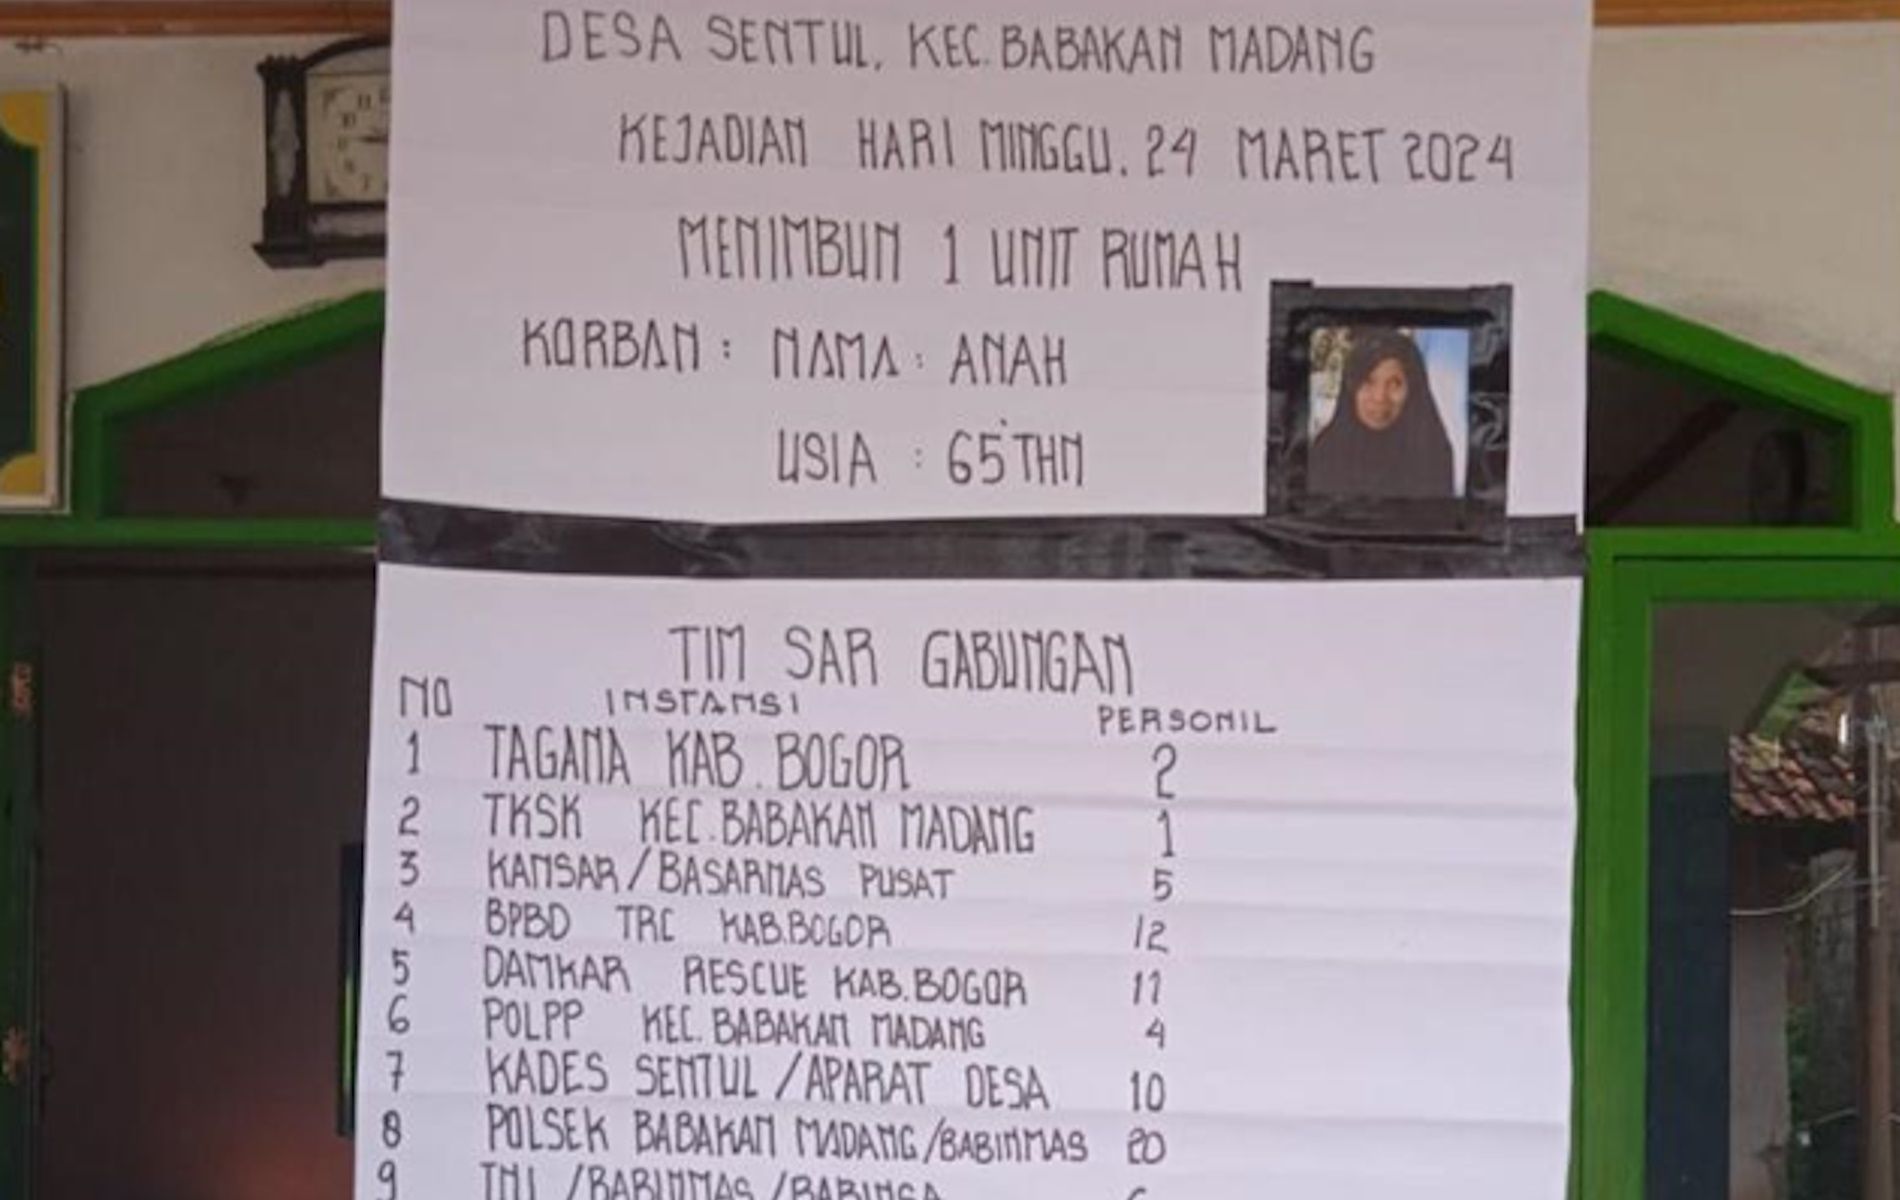 DESA SENTUL, KEC. BABAKAN MADANG
KEJADIAN HARI MINGGU. 24 MARET 2024
MENIMBUN 1 UNIT RUMAH
KORBAN : NAMA : ANAH
USIA : 65 THN
TIM SAR GABUNGAN
NO INSTANSI PERSONIL
1 TAGANA KAB. BOGOR 2
2 TKSK KEC. BABAKAN MADANG 1
3 KANSAR/BASARNAS PUSAT 5
4 BPBD TRC KAB.BOGOR 12
5 DAMKAR RESCUE KAB.BOGOR 11
6 POLPP KEC. BABAKAN MADANG 4
7 KADES SENTUL /APARAT DESA 10
8 POLSEK BABAKAN MADANG/BABINMAS 20
9 TNI /BABINMAS /BABINSA